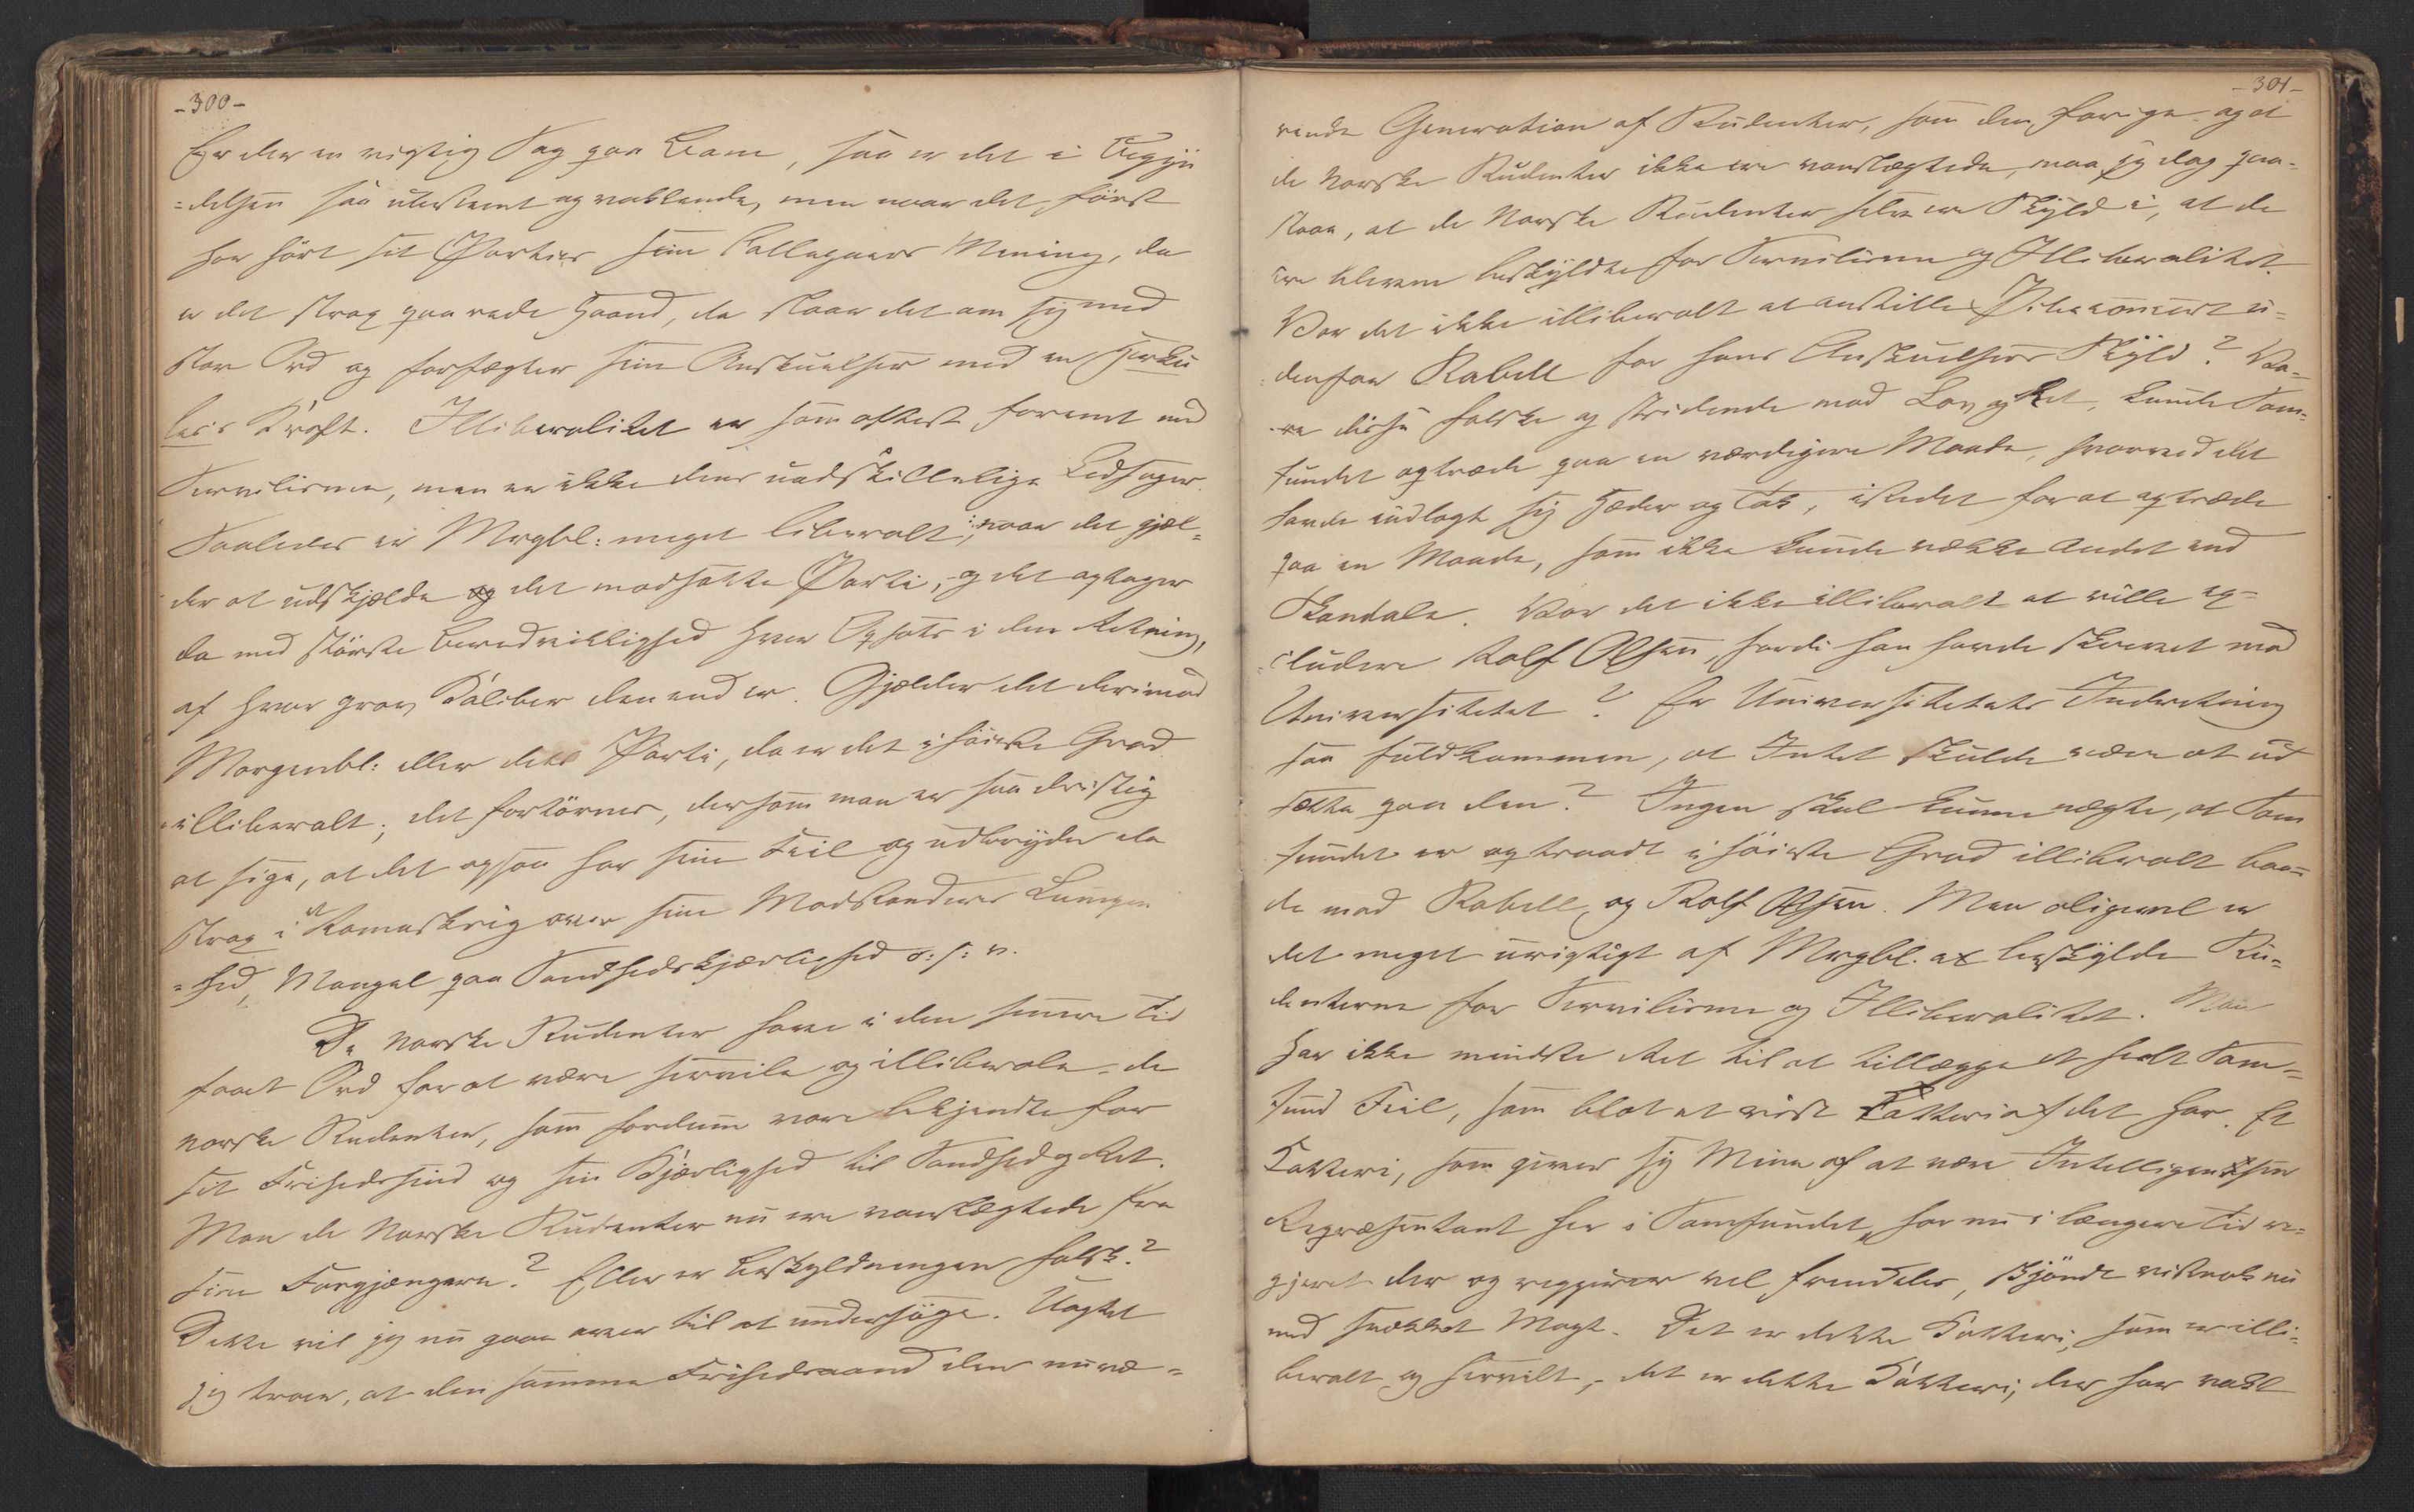 -300-
Er der en vigtig Sag paa Bane, saa er det i Begyn
=delsen saa ubestemt og vaklende, men naar det först
har hört sit Parties sine Kollegaers Mening, da
er det strax paa rede Haand, da slaaer det om sig med
store Ord og forfægter sine Anskuelser med en Herku
les's Kraft. Illiberalitet er som oftest forenet med
Servilisme, men er ikke dens uadskillelige Ledsager.
Saaledes er Mrgbl: meget liberalt, naar det gjæl-
der at udskjælde det modsatte Parti, og det optager
da med störste Beredvillighed hver Opsats i den Retning,
af hvor grov Kaliber den end er. Gjælder det derimod
Morgenbl: eller dets Parti, da er det i höieste Grad
illiberalt; det fortörnes, dersom man er saa dristig
at sige, at det ogsaa har sine Feil og udbryder da
strax i et Ramaskrig over sine Modstanderes Lumpen
=hed, Mangel paa Sandhedskjærlighed o: s: v.
De norske Studenter have i den senere Tid
faaet Ord for at være servile og illiberale - de
norske Studenter, som fordum vare bekjendte for
sit Frihedssind og sin Kjærlighed til Sandhed og Ret.
Mon de Norske Studenter nu ere vanslægtede fra
sine Forgjængere? Eller er Beskyldningen falsk?
Dette vil jeg nu gaae over til at undersöge. Uagtet
jeg troer, at den samme Frihedsaand den nuvæ=
-301-
rende Generation af Studenter, som den forige og at
de Norske Studenter ikke ere vanslægtede, maa jeg dog paa-
staae, at de Norske Studenter selv ere Skyld i, at de
ere blevne beskyldte for Servilisme og Illiberalitet.
Var det ikke illiberalt at anstille Pibeconcert u=
denfor Rabell for hans Anskuelsers Skyld? Va=
re disse falske og stridende mod Lov og Ret, kunde Sam-
fundet optræde paa en værdigere Maade, hvorved det
havde indlagt sig Hæder og Tak, istedet for at optræde
paa en Maade, som ikke kunde vække Andet end
Skandale. Var det ikke illiberalt at ville ex=
cludere Rolf Olsen, fordi han havde skrevet mod
Universitetet? Er Universitetets Indretning
saa fuldkommen, at Intet skulde være at ud
sætte paa den? Ingen skal kunne nægte, at Sam
fundet er optraadt i höieste Grad illiberalt baa=
de mod Rabell, og Rolf Olsen. Men aligevel er
det meget urigtigt af Mrgbl. at beskylde Stu=
denterne for Servilisme og Illiberalitet. Man
har ikke mindste Ret til at tillægge et heelt Sam=
fund Feil, som blot et vist Kotteri af det har. Et
Kotteri, som giver sig Mine af at være Intelligentsens
Repræsentant her i Samfundet, har nu i længere Tid re=
gjeret der og regjerer vel fremdeles, skjöndt vistnok nu
med svækket Magt. Det er dette Kotteri, som er illi=
beralt og servilt, - det er dette Kotteri, der har vakt